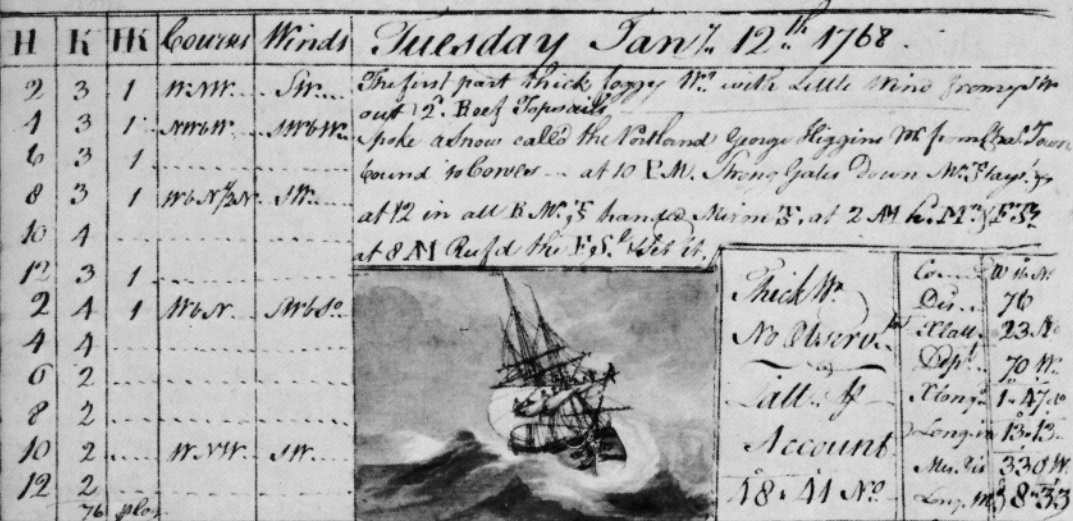 H K HK Courses Winds Tuesday Jany. 12th 1768.
2 3 1 WNW SW
4 3 1 NWbW SWbW
6 3 1
8 3 1 WbN½N SW
10 4
12 3 1
2 4 1 WbN SWbSo
4 4
6 2
8 2
10 2 WNW SW
12 2
76
The first part thick foggy Wr. with Little Wind from ye SW
out 2d. Reef Topsails
Spoke a Snow called the Portland George Higgins Mr. from Chas. Town
bound to Cowes at 10 P.M. Strong Gales Down
at 12 in all handed Mizon at 2 AM
at 8 AM Reef'd the & Set it.
Thick Wr.
No Observn.
Latt. Pr.
Account
48.41 No
Course WbN
Dis. 76
XLatt. 23 No
Dept. 70 W.
XLong. 1.47
Long. in 13.13
Mer. Dis 330 W.
Long. 38.33